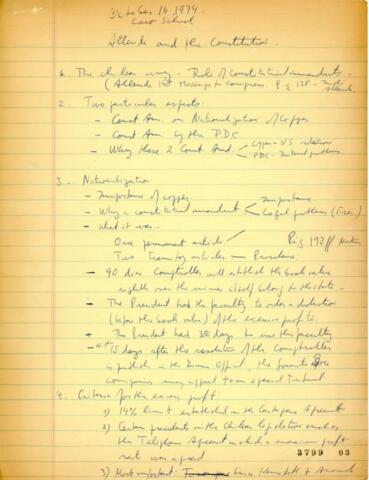 October 16, 1974.
Law School
Allende and the Constitution.
1. The chilean way. Role of Constitutional amendments.
(Allende 1st Message to Congress. P.g 138 -
Allende
2. Two particular aspects:
- Const Am. on Nationalization of Copper
- Const Am. by the PDC
- Why these 2 Const Amd. Copper - US relations
PDC - Internal problems
3 - Nationalization
- Importance of copper
- Why a constitutional amendment Importance
Legal problems
- What it was.
One permanent article Pg 192 ff
Two transitory articles Procedure:
- 90 days Comptroller will establish the book value
rights over the mines itself belong to the state.
- The President had the faculty to order a deduction
(before the book value) of the excess profits.
- The President had 30 days to use this faculty
- 15 days after the resolution of the Comptroller
is publish in the Diario Official, the State or the
companies may appeal to a special Tribunal.
4. Criteria for the excess profit
1) 14% limit established in the Cartagena Agreement
2) Certain precedents in the Chilean legislation such as
the Telephone Agreement in which a maximum profit
rate was agreed
3799 03
3) Most important: